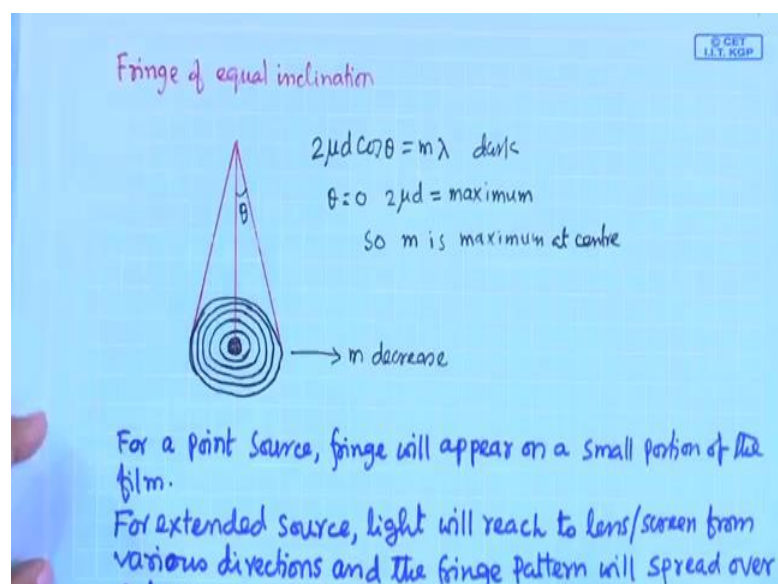 © CET
I.I.T. KGP
Fringe of equal inclination
2μd cosθ = mλ dark
θ = 0 2μd = maximum
So m is maximum at centre
θ
→ m decrease
For a point source, fringe will appear on a small portion of the
film.
For extended source, light will reach to lens/screen from
various directions and the fringe pattern will spread over